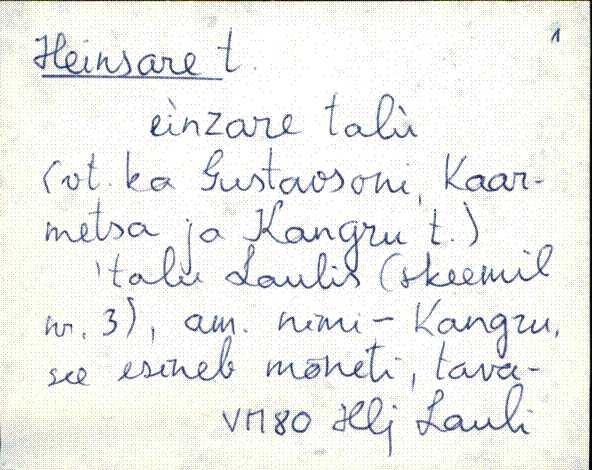 1
Heinsare t.
einzare talù
(vt. ka Gustavsoni, Kaar-
metsa ja Kangru t.)
'talu Laulis (skeemil
nr. 3), am. nimi - Kangru,
see esineb mõneti, tava-
VM 80 Hlj Lauli